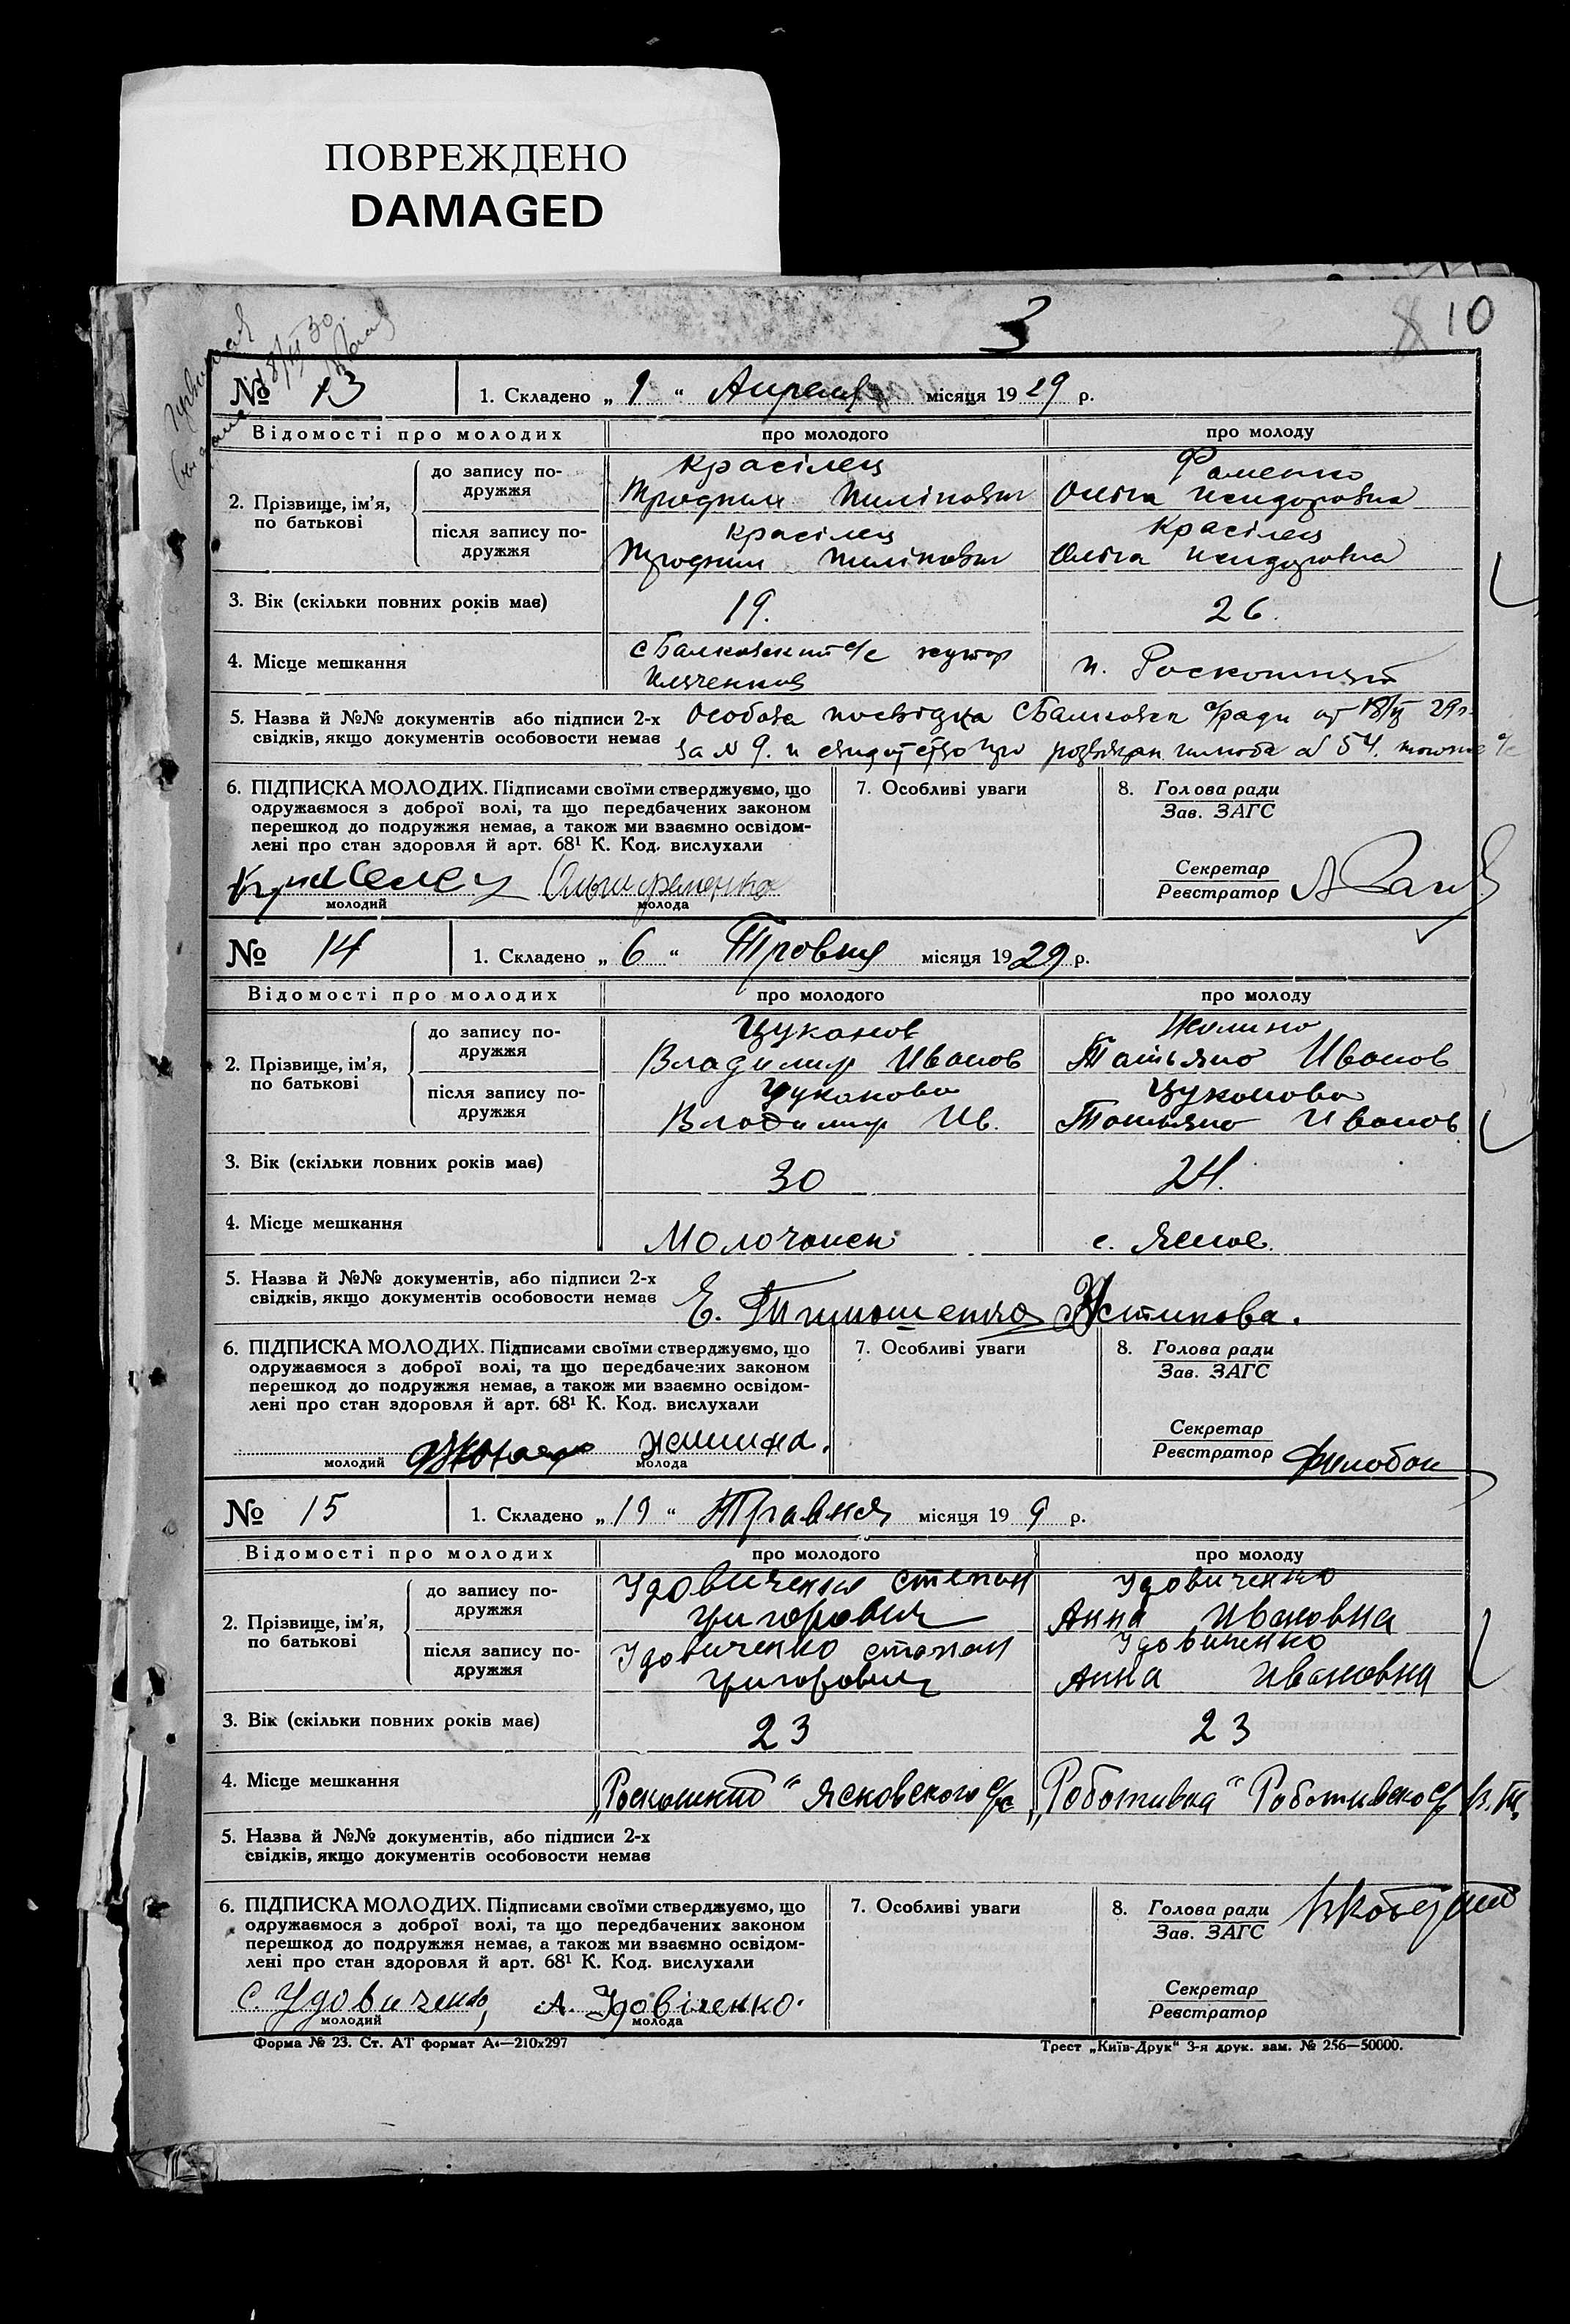 ПОВРЕЖДЕНО
DAMAGED
3
8 10
18/II 30
№ 13 1. Складено „ 1 “ Апреля місяця 1929 р.
Відомості про молодих про молодого про молоду
2. Прізвище, ім’я, по батькові
до запису подружжя
Красілец
Пилінович
Фоменко
Ольга Исидоровна
після запису подружжя
Красілец
Пилінович
Красілец
Ольга Исидоровна
3. Вік (скільки повних років має) 19. 26.
4. Місце мешкання
СБалковский с/с хутор
п. Роскошный
5. Назва й №№ документів або підписи 2-х
свідків, якщо документів особовости немає
Особова посвідка СБалковск с/ради от 18/II 29 г.
за № 9. и № 54.
6. ПІДПИСКА МОЛОДИХ. Підписами своїми стверджуємо, що
одружаємося з доброї волі, та що передбачених законом
перешкод до подружжя немає, а також ми взаємно освідом-
лені про стан здоровля й арт. 68¹ К. Код. вислухали
молодий молода
7. Особливі уваги
8. Голова ради
Зав. ЗАГС
Секретар
Реєстратор
№ 14 1. Складено „ 6 “ Тровня місяця 1929 р.
Відомості про молодих про молодого про молоду
2. Прізвище, ім’я, по батькові
до запису подружжя
Цуканов
Владимир Иванов
Татьяна Иванов
після запису подружжя
Цуканова
Владимир Ив.
Цуканова
Татьяна Иванов
3. Вік (скільки повних років має) 30 24.
4. Місце мешкання Молочанск с. Ясное.
5. Назва й №№ документів, або підписи 2-х
свідків, якщо документів особовости немає
Е. Тимошенко Устинова.
6. ПІДПИСКА МОЛОДИХ. Підписами своїми стверджуємо, що
одружаємося з доброї волі, та що передбачених законом
перешкод до подружжя немає, а також ми взаємно освідом-
лені про стан здоровля й арт. 68¹ К. Код. вислухали
молодий молода
7. Особливі уваги
8. Голова ради
Зав. ЗАГС
Секретар
Реєстратор
№ 15 1. Складено „ 19 “ Травня місяця 19 9 р.
Відомості про молодих про молодого про молоду
2. Прізвище, ім’я, по батькові
до запису подружжя
Удовиченко Степан
Григорович
Удовиченко
Анна Ивановна
після запису подружжя
Удовиченко Степан
Григорович
Удовиченко
Анна Ивановна
3. Вік (скільки повних років має) 23 23
4. Місце мешкання „Роскошний“ Ясковского с/с „Роботивка“
5. Назва й №№ документів, або підписи 2-х
свідків, якщо документів особовости немає
6. ПІДПИСКА МОЛОДИХ. Підписами своїми стверджуємо, що
одружаємося з доброї волі, та що передбачених законом
перешкод до подружжя немає, а також ми взаємно освідом-
лені про стан здоровля й арт. 68¹ К. Код. вислухали
С. Удовиченко, А. Удовіченко.
молодий молода
7. Особливі уваги
8. Голова ради
Зав. ЗАГС
Секретар
Реєстратор
Форма № 23. Ст. АТ формат А4—210х297
Трест „Київ-Друк“ 3-я друк. зам. № 256—50000.